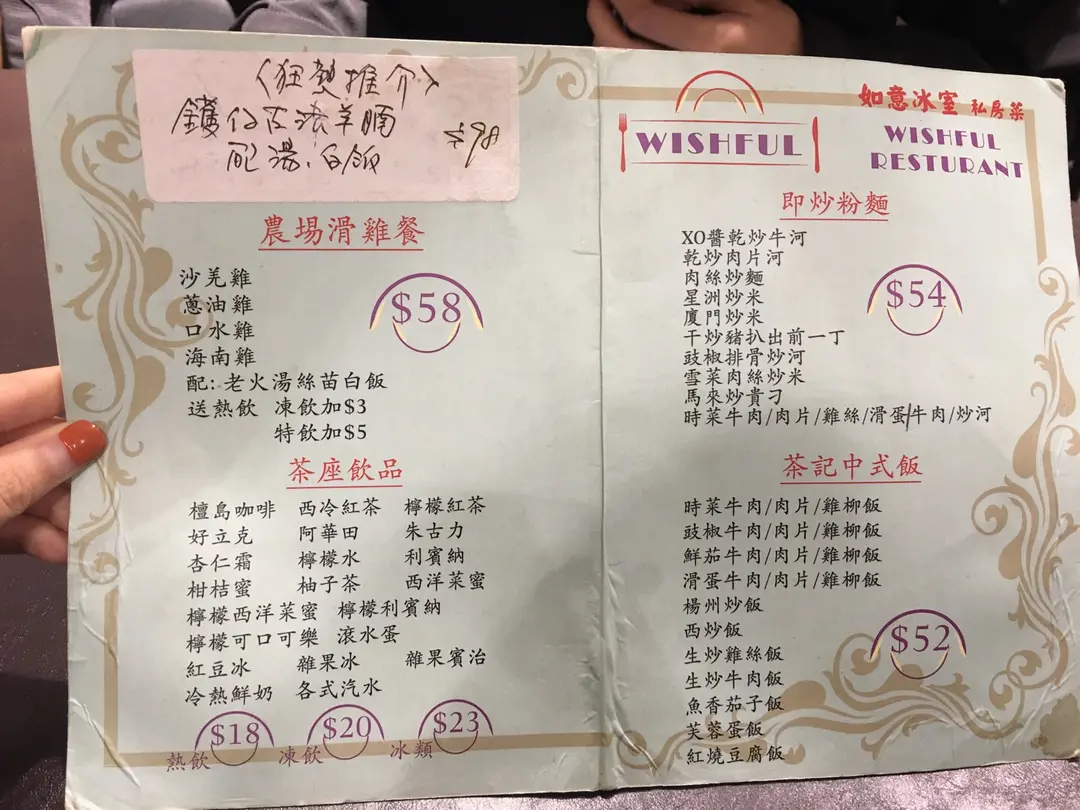 〈狂熱推介〉
羊腩
$98
配湯、白飯
農場滑雞餐
沙羌雞
蔥油雞
口水雞
海南雞
$58
配: 老火湯絲苗白飯
送熱飲 凍飲加$3
特飲加$5
茶座飲品
檀島咖啡 西冷紅茶 檸檬紅茶
好立克 阿華田 朱古力
杏仁霜 檸檬水 利賓納
柑桔蜜 柚子茶 西洋菜蜜
檸檬西洋菜蜜 檸檬利賓納
檸檬可口可樂 滾水蛋
紅豆冰 雜果冰 雜果賓治
冷熱鮮奶 各式汽水
熱飲 $18 凍飲 $20 冰類 $23
WISHFUL
如意冰室 私房菜
WISHFUL
RESTURANT
即炒粉麵
XO醬乾炒牛河
乾炒肉片河
肉絲炒麵
星洲炒米
廈門炒米
干炒豬扒出前一丁
豉椒排骨炒河
雪菜肉絲炒米
馬來炒貴刁
時菜牛肉/肉片/雞絲/滑蛋牛肉/炒河
$54
茶記中式飯
時菜牛肉/肉片/雞柳飯
豉椒牛肉/肉片/雞柳飯
鮮茄牛肉/肉片/雞柳飯
滑蛋牛肉/肉片/雞柳飯
楊州炒飯
西炒飯
生炒雞絲飯
生炒牛肉飯
魚香茄子飯
芙蓉蛋飯
紅燒豆腐飯
$52